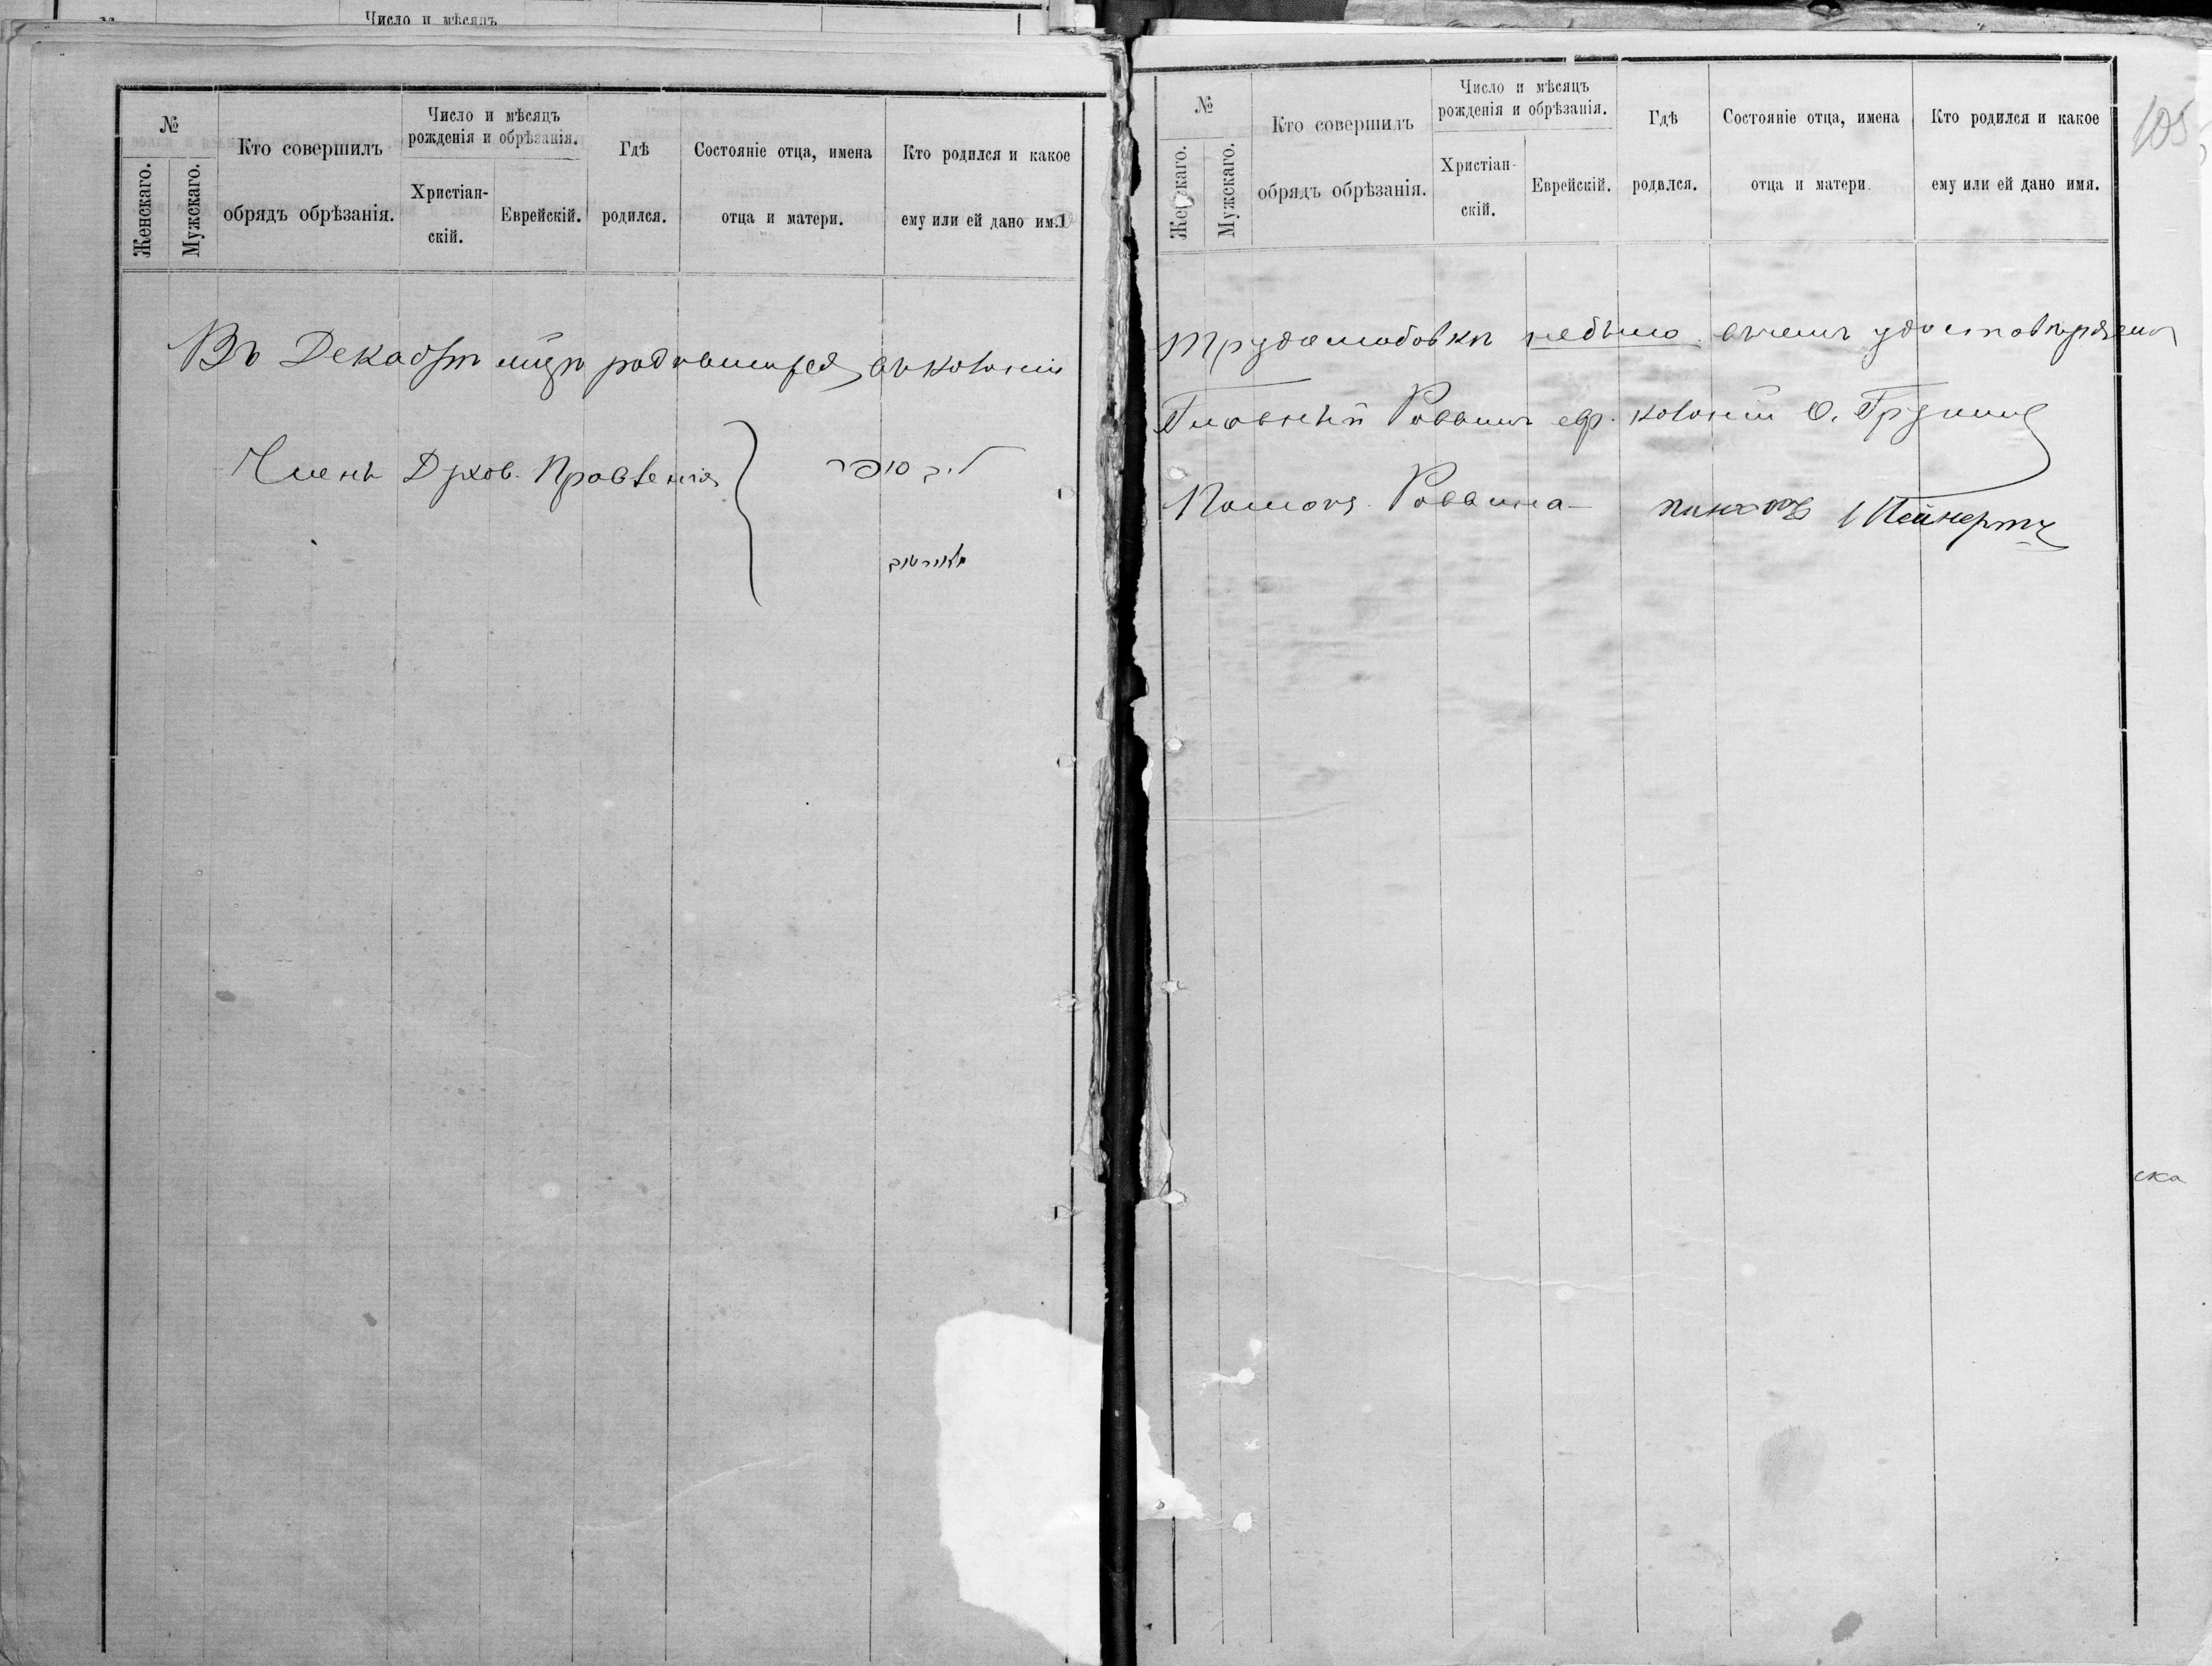 Число и мѣсяцъ
№
Женскаго.
Мужскаго.
Кто совершилъ
обрядъ обрѣзанія.
Число и мѣсяцъ
рожденія и обрѣзанія.
Христіан-
скій.
Еврейскій.
Гдѣ
родился.
Состояніе отца, имена
отца и матери.
Кто родился и какое
ему или ей дано имя
Въ Декабрѣ мцѣ родившихся въ колоніи
Члены Духов. Правленія
№
Женскаго.
Мужскаго.
Кто совершилъ
обрядъ обрѣзанія.
Число и мѣсяцъ
рожденія и обрѣзанія.
Христіан-
скій.
Еврейскій.
Гдѣ
родился.
Состояніе отца, имена
отца и матери.
Кто родился и какое
ему или ей дано имя.
105
Трудолюбовкѣ небыло въ чемъ удостовѣряемъ
Главный Раввинъ евр. колоній
Помощ. Раввина
ска